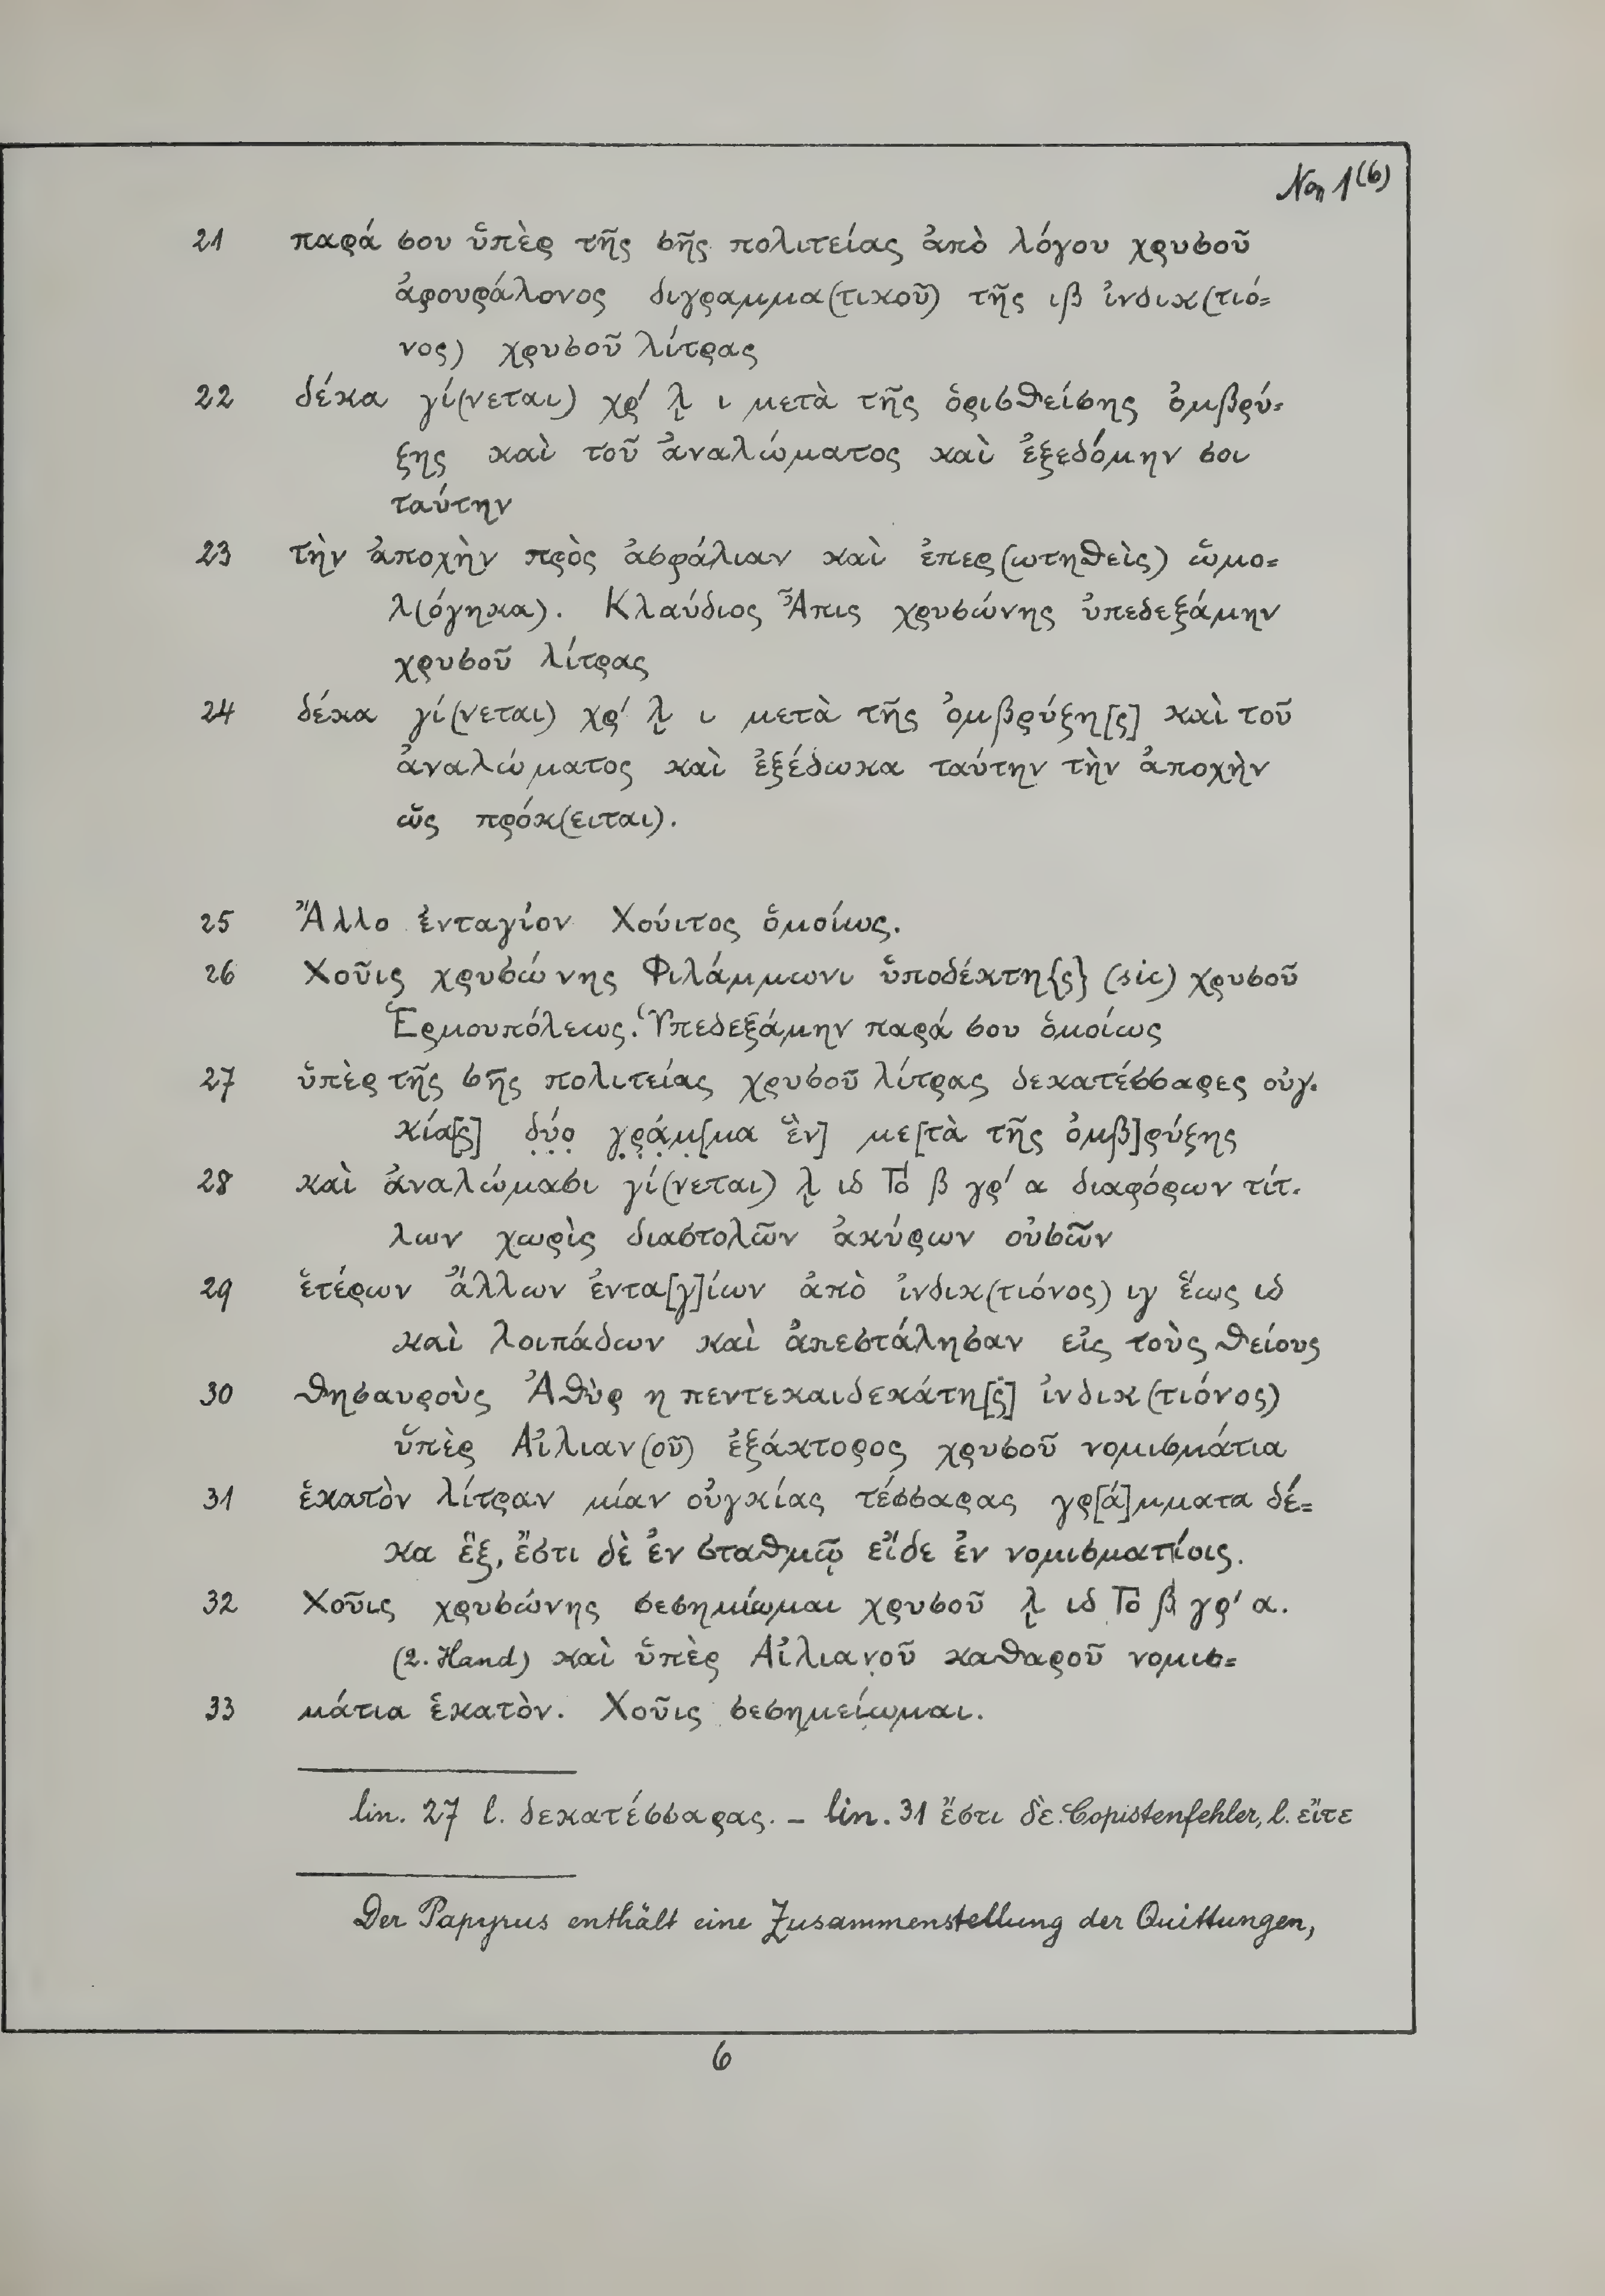 No 1(6)
21 παρά σου ὑπὲρ τῆς σῆς πολιτείας ἀπὸ λόγου χρυσοῦ
ἀρουράλονος διγραμμα(τικοῦ) τῆς ιβ ἰνδικ(τιό=
νος) χρυσοῦ λίτρας
22 δέκα γί(νεται) χρ' λ ι μετὰ τῆς ὁρισθείσης ὀμβρύ=
ξης καὶ τοῦ ἀναλώματος καὶ ἐξεδόμην σοι
ταύτην
23 τὴν ἀποχὴν πρὸς ἀσφάλιαν καὶ ἐπερ(ωτηθεὶς) ὡμο=
λ(όγηκα). Κλαύδιος Ἆπις χρυσώνης ὑπεδεξάμην
χρυσοῦ λίτρας
24 δέκα γί(νεται) χρ' λ ι μετὰ τῆς ὀμβρύξη[ς] καὶ τοῦ
ἀναλώματος καὶ ἐξέδωκα ταύτην τὴν ἀποχὴν
ὡς πρόκ(ειται).
25 Ἄλλο ἐνταγίον Χούιτος ὁμοίως.
26 Χοῦις χρυσώνης Φιλάμμωνι ὑποδέκτη{ς} (sic) χρυσοῦ
Ἑρμουπόλεως. Ὑπεδεξάμην παρά σου ὁμοίως
27 ὑπὲρ τῆς σῆς πολιτείας χρυσοῦ λίτρας δεκατέσσαρες οὐγ.
κία[ς] δ̣ύ̣ο̣ γ̣ρ̣ά̣μ̣[μα ἓν] με[τὰ τῆς ὀμβ]ρύξης
28 καὶ ἀναλώμασι γί(νεται) λ ιδ Γο β γρ' α διαφόρων τίτ.
λων χωρὶς διαστολῶν ἀκύρων οὐσῶν
29 ἑτέρων ἄλλων ἐντα[γ]ίων ἀπὸ ἰνδικ(τιόνος) ιγ ἕως ιδ
καὶ λοιπάδων καὶ ἀπεστάλησαν εἰς τοὺς θείους
30 θησαυροὺς Ἁθὺρ η πεντεκαιδεκάτη[ς] ἰνδικ(τιόνος)
ὑπὲρ Αἰλιαν(οῦ) ἐξάκτορος χρυσοῦ νομισμάτια
31 ἑκατὸν λίτραν μίαν οὐγκίας τέσσαρας γρ[ά]μματα δέ=
κα ἓξ, ἔστι δὲ ἐν σταθμῷ εἴδε ἐν νομισματίοις.
32 Χοῦις χρυσώνης σεσημίωμαι χρυσοῦ λ ιδ Γο β γρ' α.
(2. Hand) καὶ ὑπὲρ Αἰλιαν̣οῦ καθαροῦ νομισ=
33 μάτια ἑκατὸν. Χοῦις σεσημείωμαι.
lin. 27 l. δεκατέσσαρας. – lin. 31 ἔστι δὲ: Copistenfehler, l. εἴτε
Der Papyrus enthält eine Zusammenstellung der Quittungen,
6